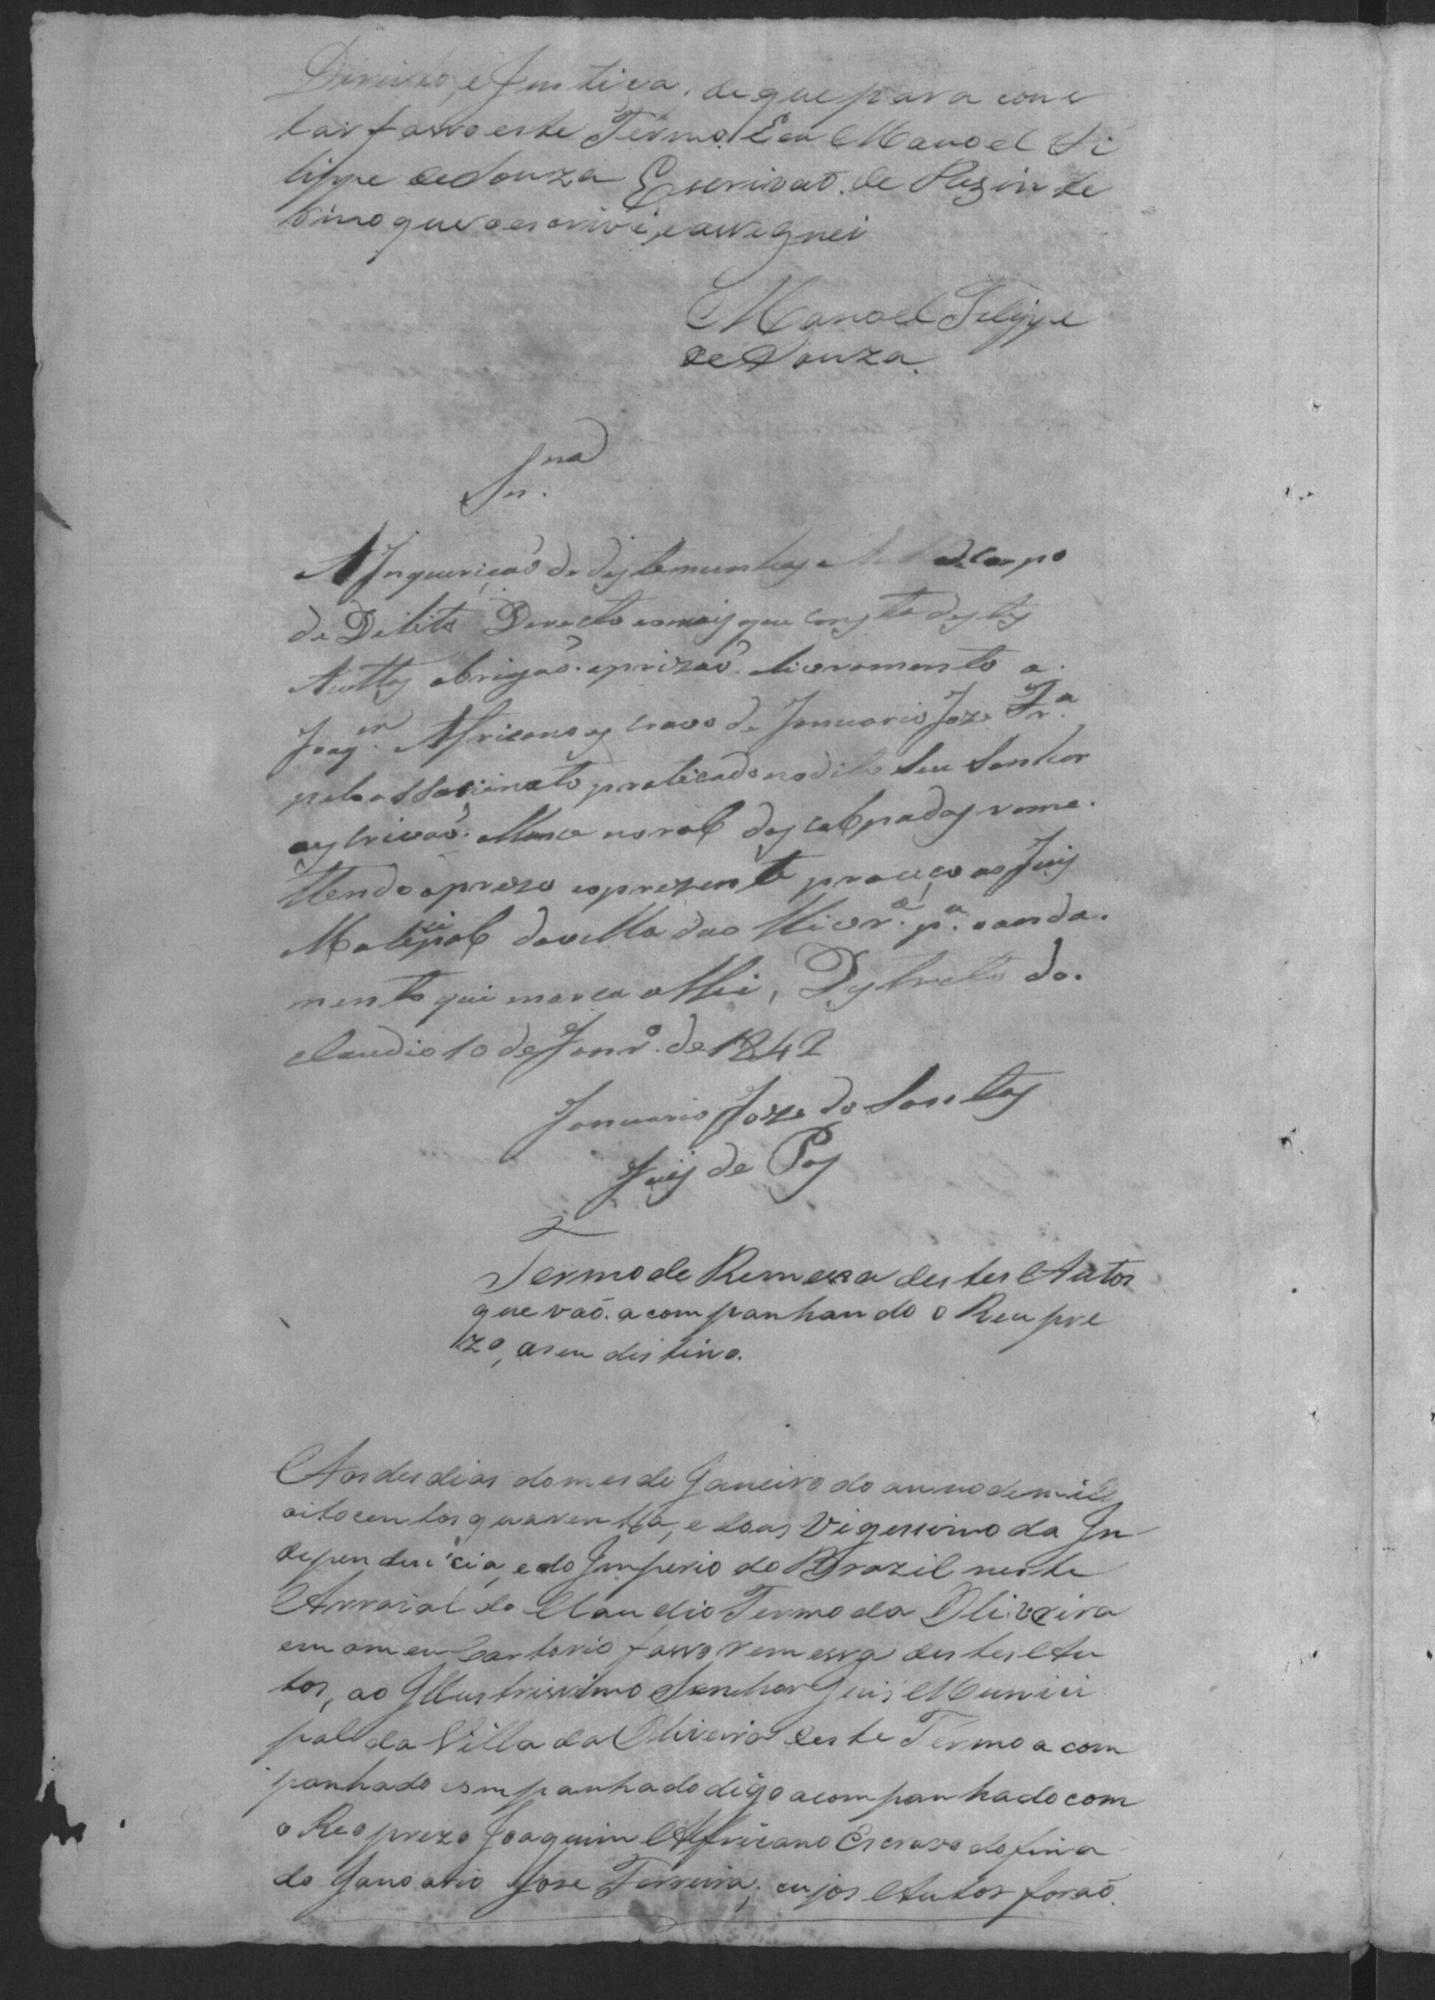 Direito, e Justiça, de que para cons
tar fasso este Termo. Eu Manoel Fi
lippe de Souza Escrivaõ de Paz in te
rino que o escrivi, e assignei
Manoel Filippe
de Souza.
Sn.ª
A Inquiriçaõ de dystemunhas e de Corpo
de Delito Directo e o mais que consta destes
Auttos obrigaõ. a prizaõ. e livramento a
Joaq.m Africano escravo de Januario Joze Fr.ª
pelo assacinato praticado no dito Seu Senhor
o escrivaõ. Lance no rol dos culpados reme.
ttendo o prezo e o prezente proceço ao Juiz
Monicipal da villa da Olivr.ª p.ª o anda.
mento que marca a Lei, Destricto do
Claudio 10 de Janr.º de 1842
Januario Joze do Santos
Juis de Pas
Termo de Remessa destes Autos
que vaõ. acompanhando o Reu pre
zo, a seu distino.
Aos des dias do mes de Janeiro do anno de mil
oito centos quarenta, e dous Vigessimo da In-
dependencia, e do Imperio do Brazil neste
Arraial do Claudio Termo da Oliveira
em o meu Cartorio fasso remessa destes Au
tos, ao Illustrissimo Senhor Juis Munici
pal da Villa da Oliveira deste Termo acom
panhado companhado digo acompanhado com
o Reo prezo Joaquim Africano Escravo do fina
do Januario Jose Ferreira, cujos Autos foraõ.